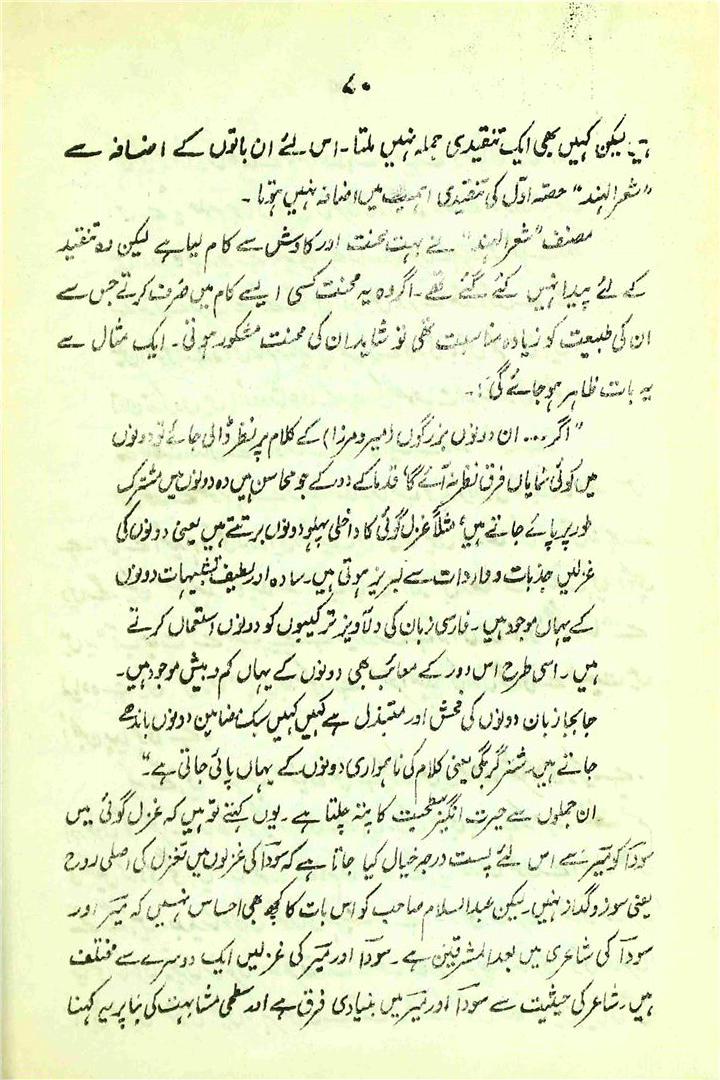 ۷۰
ہیں لیکن کہیں بھی ایک تنقیدی جملہ نہیں ملتا۔ اس لئے ان باتوں کے اضافہ سے
"شعر الہند" حصہ اوّل کی تنقیدی اہمیت میں اضافہ نہیں ہوتا۔
مصنف "شعر الہند" نے بہت محنت اور کاوش سے کام لیا ہے لیکن وہ تنقید
کے لئے پیدا نہیں کئے گئے تھے۔ اگر وہ یہ محنت کسی ایسے کام میں صَرف کرتے جس سے
ان کی طبیعت کو زیادہ مناسبت تھی تو شاید ان کی محنت مشکور ہوتی۔ ایک مثال سے
یہ بات ظاہر ہو جائے گی:۔
"اگر ... ان دونوں بزرگوں (میر و مرزا) کے کلام پر نظر ڈالی جائے تو دونوں
میں کوئی نمایاں فرق نظر نہ آئے گا، قدما کے دور کے جو محاسن ہیں وہ دونوں میں مشترک
طور پر پائے جاتے ہیں، مثلاً غزل گوئی کا داخلی پہلو دونوں برتتے ہیں یعنی دونوں کی
غزلیں جذبات و واردات سے لبریز ہوتی ہیں۔ سادہ اور لطیف تشبیہات دونوں
کے یہاں موجود ہیں۔ فارسی زبان کی دلآویز ترکیبوں کو دونوں استعمال کرتے
ہیں۔ اسی طرح اس دور کے معائب بھی دونوں کے یہاں کم و بیش موجود ہیں۔
جا بجا زبان دونوں کی فحش اور متبذل ہے کہیں کہیں سبک مضامین دونوں باندھ
جاتے ہیں، شتر گربگی یعنی کلام کی ناہمواری دونوں کے یہاں پائی جاتی ہے۔"
ان جملوں سے حیرت انگیز سطحیت کا پتہ چلتا ہے۔ یوں کہتے تو ہیں کہ غزل گوئی میں
سودا کو میر سے اس لئے پست درجہ خیال کیا جاتا ہے کہ سودا کی غزلوں میں تغزل کی اصلی روح
یعنی سوز و گداز نہیں۔ لیکن عبدالسلام صاحب کو اس بات کا کچھ بھی احساس نہیں کہ میر اور
سودا کی شاعری میں بعد المشرقین ہے۔ سودا اور میر کی غزلیں ایک دوسرے سے مختلف
ہیں۔ شاعر کی حیثیت سے سودا اور میر میں بنیادی فرق ہے اور سطحی مشابہت کی بنا پر یہ کہنا